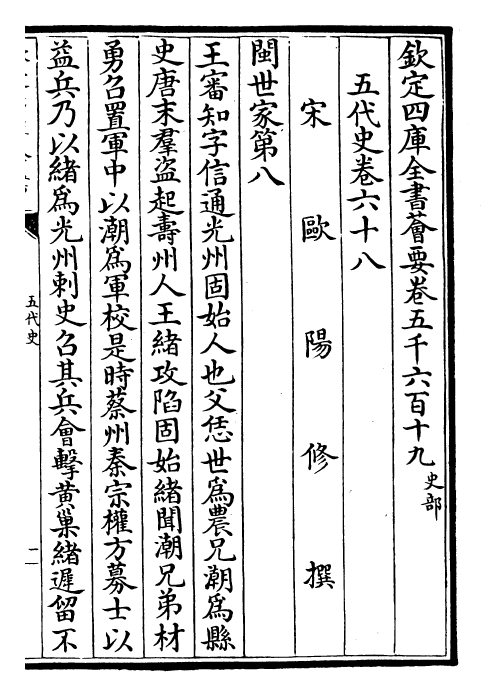 欽定四庫全書薈要卷五千六百十九 史部
五代史卷六十八
宋 歐陽修 撰
閩世家第八
王審知字信通光州固始人也父恁世為農兄潮為縣
史唐末羣盜起壽州人王緒攻陷固始緒聞潮兄弟材
勇召置軍中以潮為軍校是時蔡州秦宗權方募士以
益兵乃以緒為光州刺史召其兵會擊黄巢緒遲留不
五代史
二